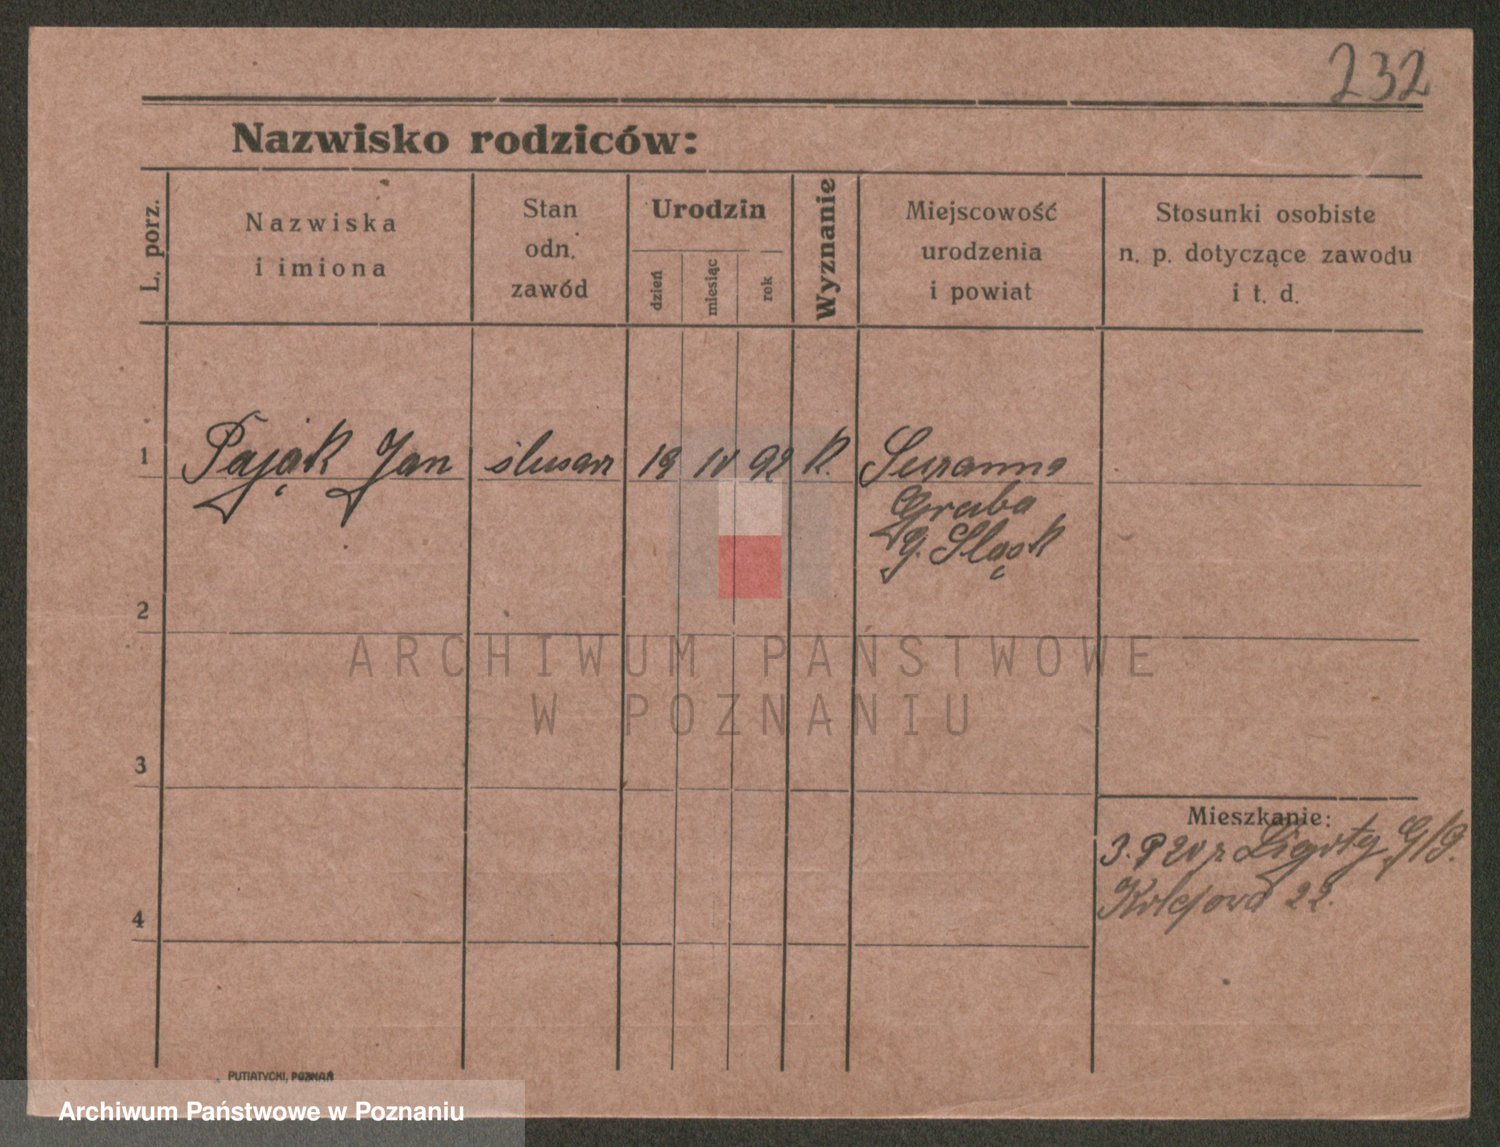 232
Nazwisko rodziców:
L. porz.
Nazwiska
i imiona
Stan
odn.
zawód
Urodzin
dzień
miesiąc
rok
Wyznanie
Miejscowość
urodzenia
i powiat
Stosunki osobiste
n. p. dotyczące zawodu
i t. d.
1
Pająk Jan
ślusarz
19
IV
92
k.
Suzanna
Gruba
g. Sląsk
2
ARCHIWUM PAŃSTWOWE
W POZNANIU
3
Mieszkanie:
3. P 20 z Ligoty G/S.
Kolejowa 22.
4
PUTIATYCKI, POZNAŃ
Archiwum Państwowe w Poznaniu